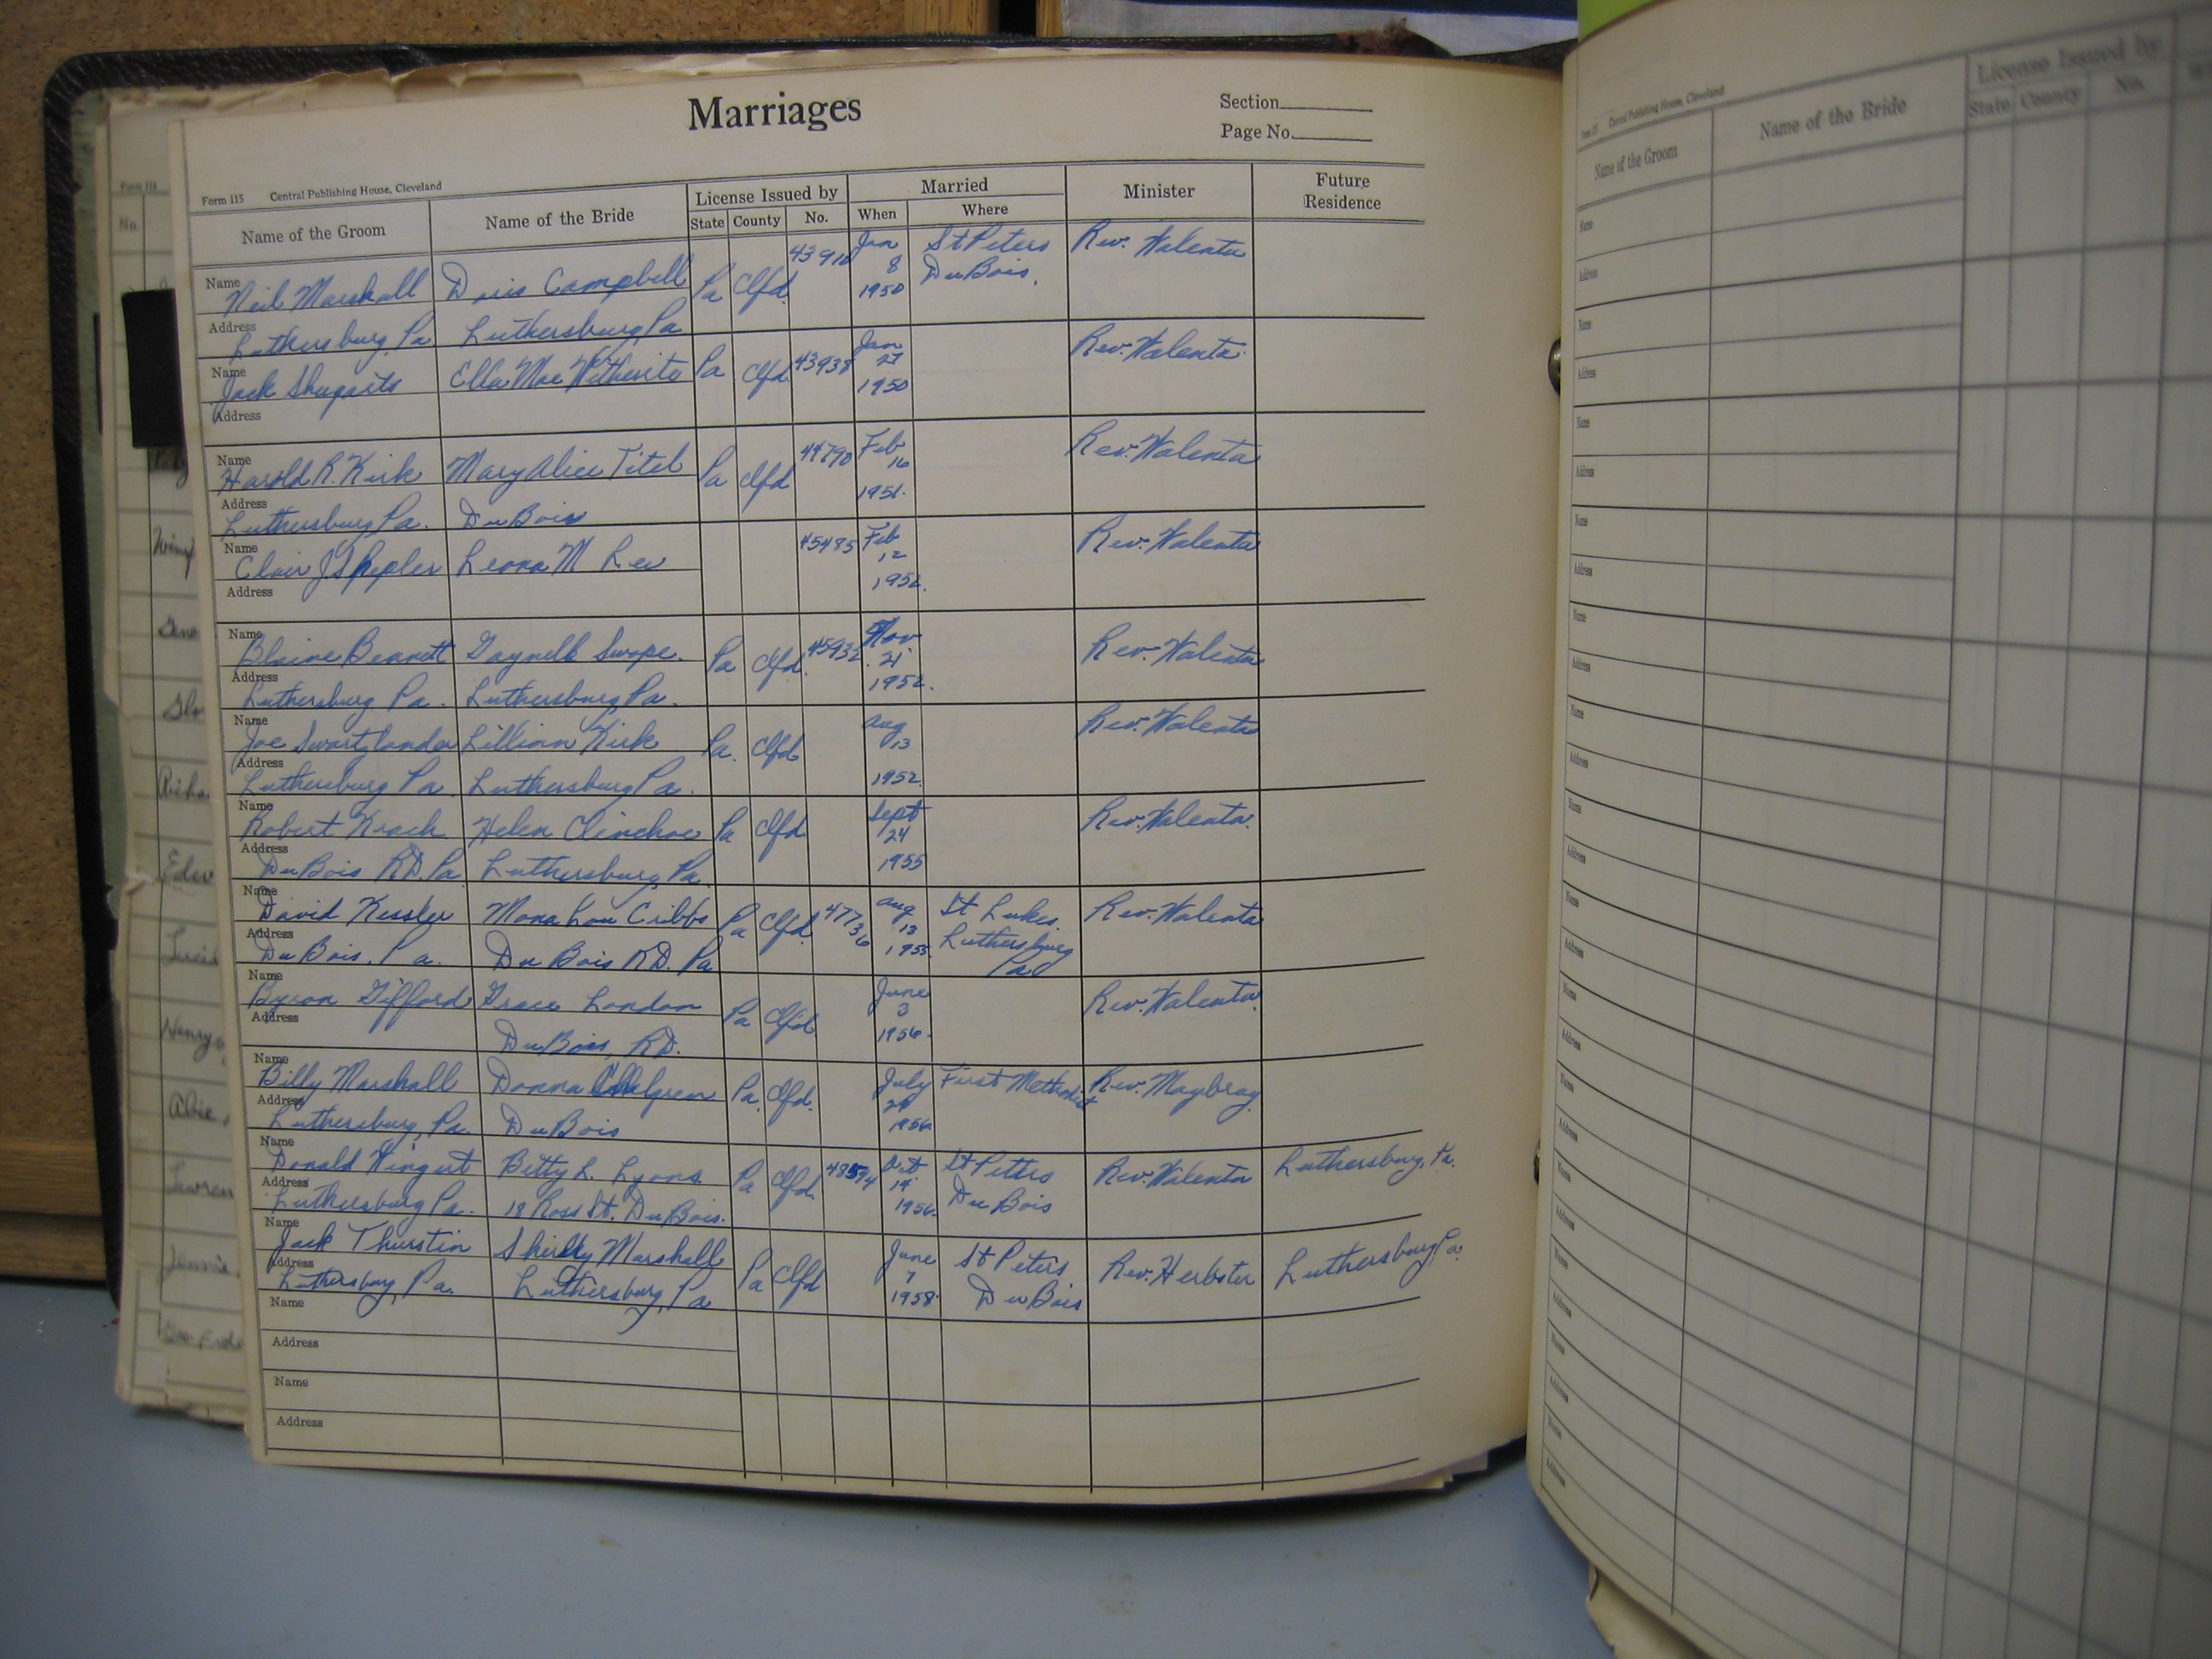 Marriages
Section
Page No.
Form 115 Central Publishing House, Cleveland
Name of the Groom
Name of the Bride
License Issued by
State County No.
Married
When Where
Minister
Future Residence
Name Neil Marshall Doris Campbell Pa Clfd. 43910 Jan 8 1950 St Peters DuBois. Rev. Valenta
Address Luthersburg, Pa Luthersburg, Pa
Name Jack Shugarts Ella Mae Witherite Pa Clfd. 43938 Jan 27 1950 Rev. Valenta
Address
Name Harold R. Kirk Mary Alice Titel Pa Clfd 44790 Feb 16 1951. Rev. Valenta
Address Luthersburg, Pa. DuBois
Name Clair J. Shepler Leona M 45485 Feb 12 1952. Rev. Valenta
Address
Name Blaine Bennett Gaynell Swope. Pa Clfd. 45932 Nov. 21 1952. Rev. Valenta
Address Luthersburg Pa. Luthersburg Pa.
Name Joe Swartzlander Lillian Kirk Pa. Clfd Aug 13 1952 Rev. Valenta
Address Luthersburg Pa. Luthersburg Pa.
Name Robert Krach Helen Pa Clfd Sept 24 1955 Rev. Valenta.
Address DuBois RD. Pa Luthersburg, Pa.
Name David Kessler Mona Lou Cribbs Pa Clfd. 47736 Aug 13 1955. St Lukes. Luthersburg Pa Rev. Valenta
Address DuBois. Pa. DuBois RD. Pa
Name Byron Gifford Grace London Pa Clfd June 3 1956. Rev. Valenta.
Address DuBois, RD.
Name Billy Marshall Donna Pa. Clfd. July 1956 First Methodist Rev. Maybray
Address Luthersburg, Pa. DuBois
Name Donald Wingert Betty L. Lyons. Pa Clfd. 48594 Oct 14 1956. St Peters DuBois Rev. Valenta Luthersburg, Pa.
Address Luthersburg Pa. 18 Ross St. DuBois.
Name Jack Thurstin Shirley Marshall Pa Clfd June 7 1958 St Peters DuBois Rev. Herbster Luthersburg Pa.
Address Luthersburg, Pa. Luthersburg, Pa
Name
Address
Name
Address
Central Publishing House, Cleveland
Name of the Groom
Name of the Bride
License Issued by
State County No.
Name
Address
Name
Address
Name
Address
Name
Address
Name
Address
Name
Address
Name
Address
Name
Address
Name
Address
Name
Address
Name
Address
Name
Address
Name
Address
Name
Address